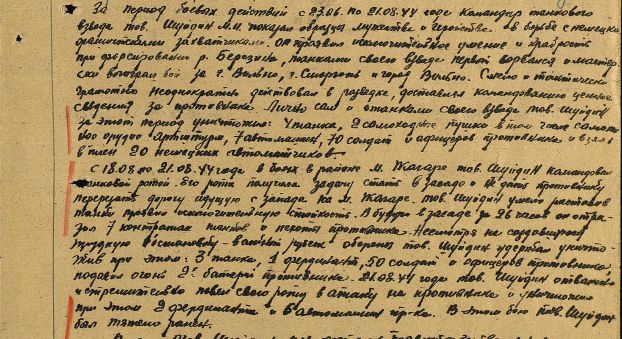 За период боевых действий с 23.06. по 21.08.44 года командир танкового
взвода тов. Шундин М.И. показал образцы мужества и геройства в борьбе с немецко
фашистскими захватчиками. Он проявил исключительное умение и храбрость
при форсировании р. Березина, танками своего взвода первой ворвался и мастер-
ски возглавил бой за г. Вильно, г. Сморгонь и город Вильно. Смело и тактически
грамотно неоднократно действовал в разведке, доставляя командованию ценные
сведения за противника. Лично сам и танками своего взвода тов. Шундин
за этот период уничтожил: 4 танка, 2 самоходные пушки в том числе
орудие артиллерии, 7 автомашин, 70 солдат и офицеров противника и взял
в плен 20 немецких автоматчиков.
С 18.08 по 21.08.44 года в боях в районе м. Жагаре тов. Шундин командовал
танковой ротой. Его рота получила задачу стать в засаде и не дать противнику
перерезать дорогу идущую с запада на м. Жагаре. тов. Шундин умело расставив
танки проявил исключительную стойкость. В будучи в засаде за 26 часов он отра-
зил 7 контратак танков и пехоты противника. Несмотря на создавшуюся
трудную обстановку - важный рубеж обороны тов. Шундин удержал уничто-
жив при этом: 3 танка, 1 фердинанд, 50 солдат и офицеров противника
подавил огонь 2х батарей противника. 21.08.44 года тов. Шундин отважно
и стремительно повел свою роту в атаку на противника и уничтожил
при этом 2 фердинанта и 6 автомашин пр-ка. В этом бою тов. Шундин
был тяжело ранен.